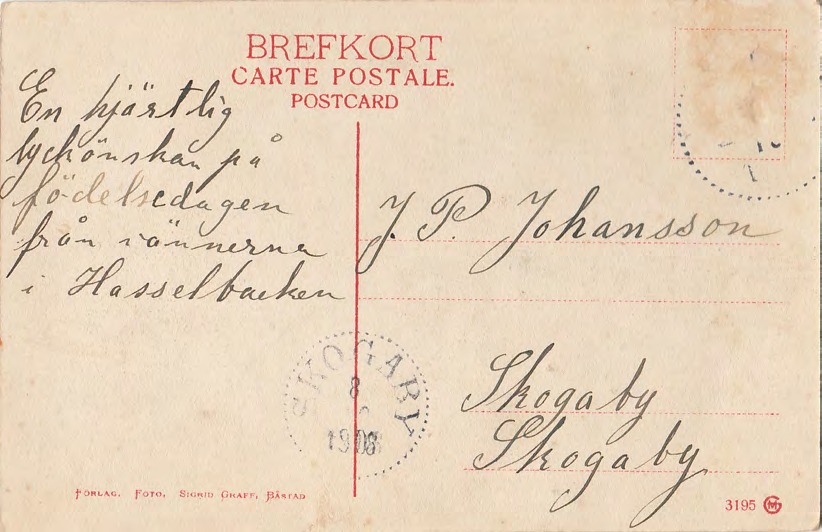 BREFKORT
CARTE POSTALE.
POSTCARD
En hjärtlig
lyckönskan på
födelsedagen
från vännerna
i Hasselbacken
J. P. Johansson
Skogaby
Skogaby
SKOGABY
8
1908
FÖRLAG. FOTO, SIGRID GRAFF, BÅSTAD
3195